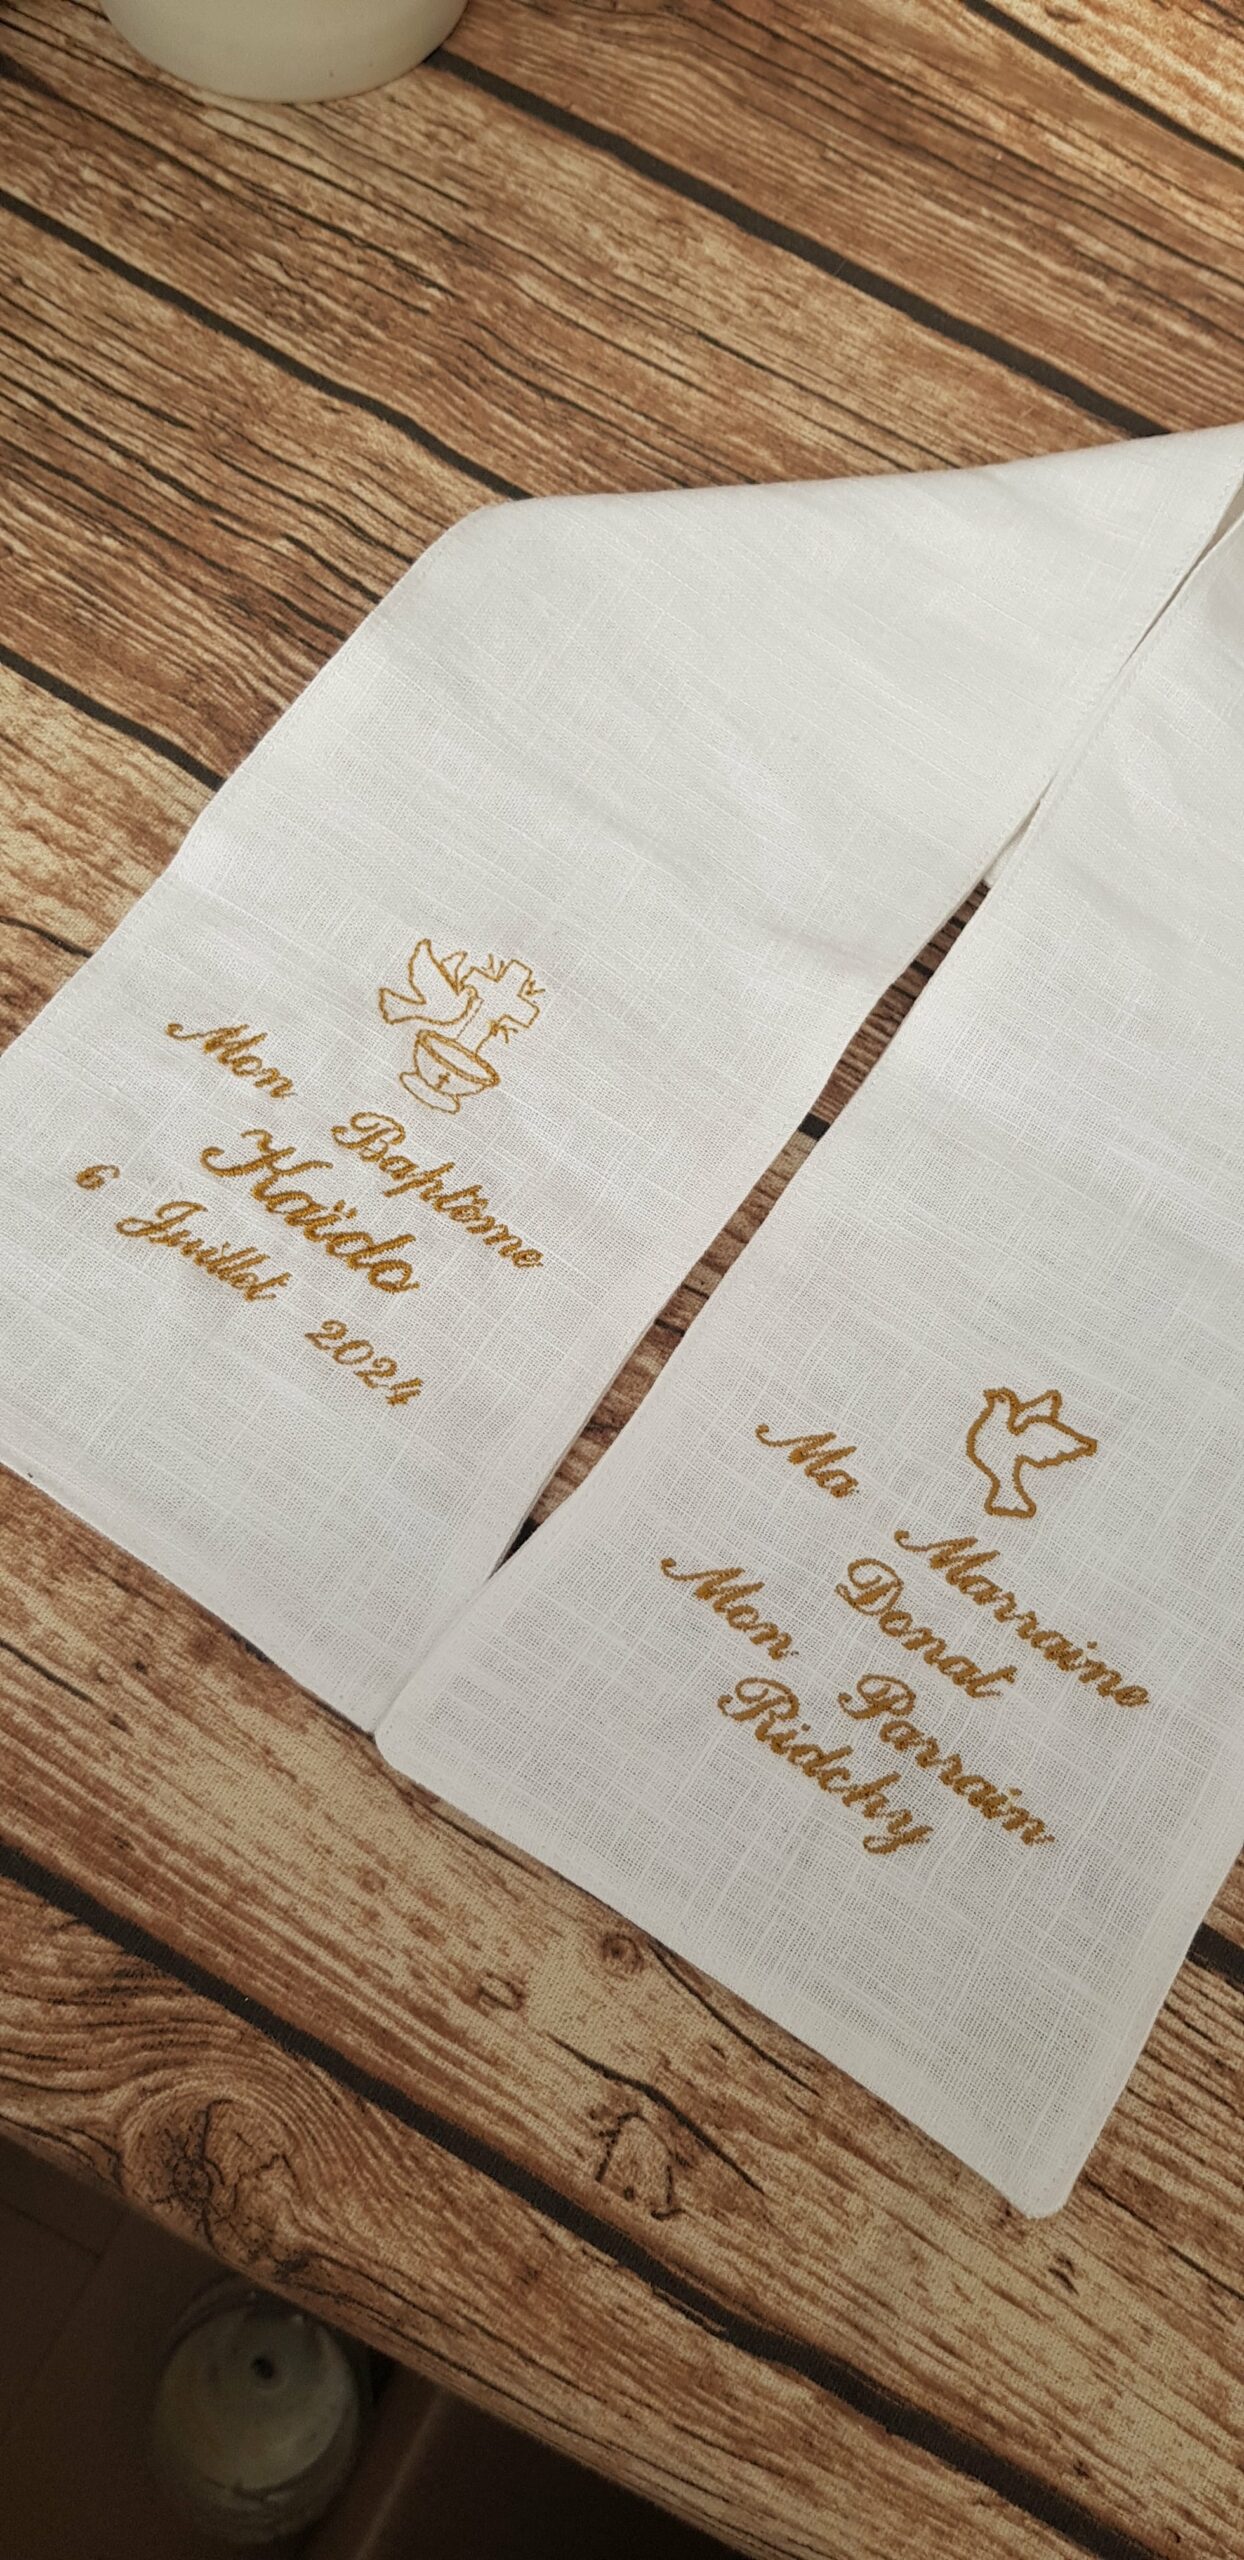 Mon Baptome
Kaïdo
6 Juillet 2024
Ma Marraine
Donat
Mon Parrain
Ridchy